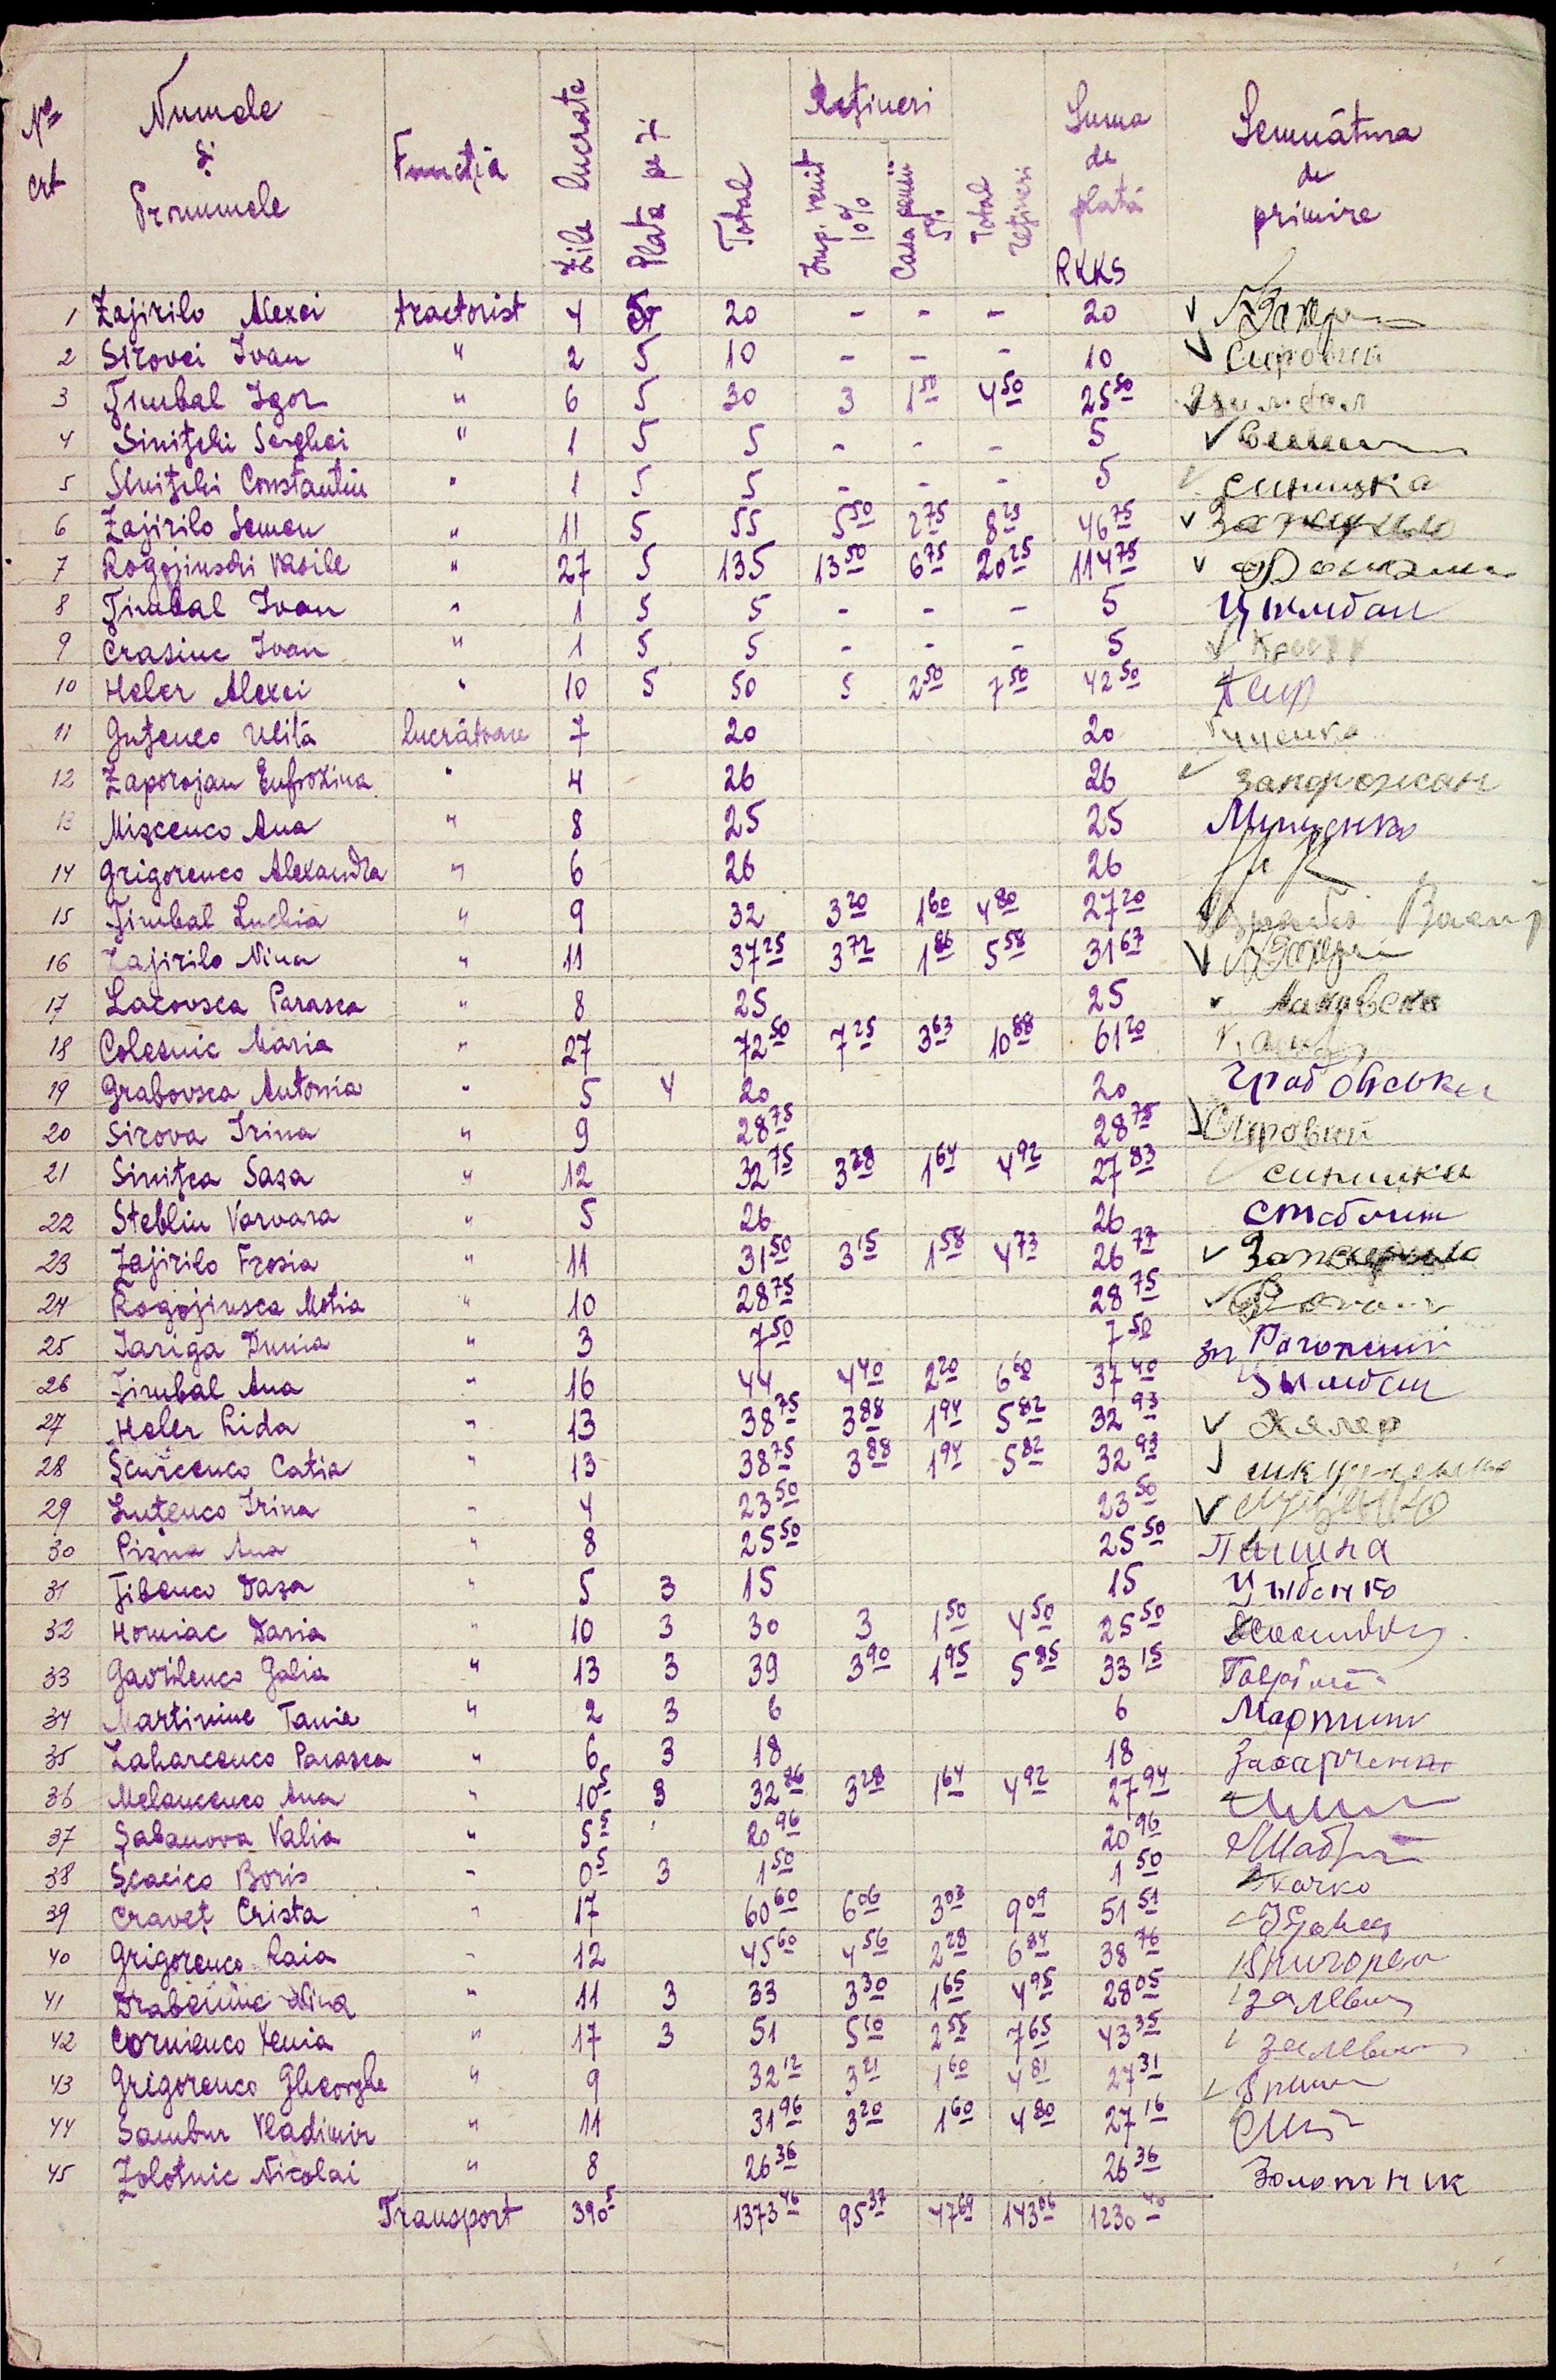 Nº crt Numele și Pronumele Funcția Zile lucrate Plata pe zi Total Rețineri Imp. venit 10% Casa pensii 5% Total rețineri Suma de plată RKKS Semnătura de primire
1 Zajirilo Alexei tractorist 4 5 20 - - - 20
2 Sirovei Ivan " 2 5 10 - - - 10 Сировий
3 Țimbal Igor " 6 5 30 3 1 50 4 50 25 50
4 Sinițchi Serghei " 1 5 5 - - - 5
5 Sinițchi Constantin " 1 5 5 - - - 5 синицка
6 Zajirilo Semen " 11 5 55 5 50 2 75 8 25 46 75
7 Rogojinschi Vasile " 27 5 135 13 50 6 75 20 25 114 75
8 Țimbal Ivan " 1 5 5 - - - 5 Цымбал
9 Crasiuc Ivan " 1 5 5 - - - 5
10 Heler Alexei " 10 5 50 5 2 50 7 50 42 50
11 Guțenco Ulita lucrătoare 7 20 20
12 Zaporojan Eufrozina " 4 26 26 Запорожан
13 Mișcenco Ana " 8 25 25 Мищенко
14 Grigorenco Alexandra " 6 26 26
15 Țimbal Luchia " 9 32 3 20 1 60 4 80 27 20
16 Zajirilo Nina " 11 37 25 3 72 1 86 5 58 31 67
17 Lacovsca Parasca " 8 25 25
18 Colesnic Maria " 27 72 50 7 25 3 63 10 88 61 20
19 Grabovsca Antonia " 5 4 20 20 Грабовська
20 Sirova Irina " 9 28 75 28 75 Сировий
21 Sinițca Sașa " 12 32 75 3 28 1 64 4 92 27 83 синицка
22 Steblin Varvara " 5 26 26 Стеблин
23 Zajirilo Frosia " 11 31 50 3 15 1 58 4 73 26 77
24 Rogojinsca Motia " 10 28 75 28 75
25 Iariga Dunia " 3 7 50 7 50
26 Țimbal Ana " 16 44 4 40 2 20 6 60 37 40 Цымбал
27 Heler Lida " 13 38 75 3 88 1 94 5 82 32 93 Хелер
28 Șcurcenco Catia " 13 38 75 3 88 1 94 5 82 32 93
29 Luțenco Irina " 4 23 50 23 50
30 Pișna Ana " 8 25 50 25 50 Пишна
31 Țibenco Dașa " 5 3 15 15 Цыбенко
32 Homiac Daria " 10 3 30 3 1 50 4 50 25 50
33 Gavrilenco Galia " 13 3 39 3 90 1 95 5 85 33 15
34 Martiniuc Tania " 2 3 6 6 Мартин
35 Zaharcenco Parasca " 6 3 18 18 Захарченко
36 Melancenco Ana " 10 5 3 32 86 3 28 1 64 4 92 27 94
37 Șabanova Valia " 5 5 20 96 20 96
38 Șcacico Boris " 0 5 3 1 50 1 50
39 Craveț Crista " 17 60 60 6 06 3 03 9 09 51 51
40 Grigorenco Raia " 12 45 60 4 56 2 28 6 84 38 76
41 Drabeniuc Nina " 11 3 33 3 30 1 65 4 95 28 05
42 Cornienco Xenia " 17 3 51 5 10 2 55 7 65 43 35
43 Grigorenco Gheorghe " 9 32 12 3 21 1 60 4 81 27 31
44 Sambur Vladimir " 11 31 96 3 20 1 60 4 80 27 16
45 Zolotnic Nicolai " 8 26 36 26 36 Золотник
Transport 390 5 1373 46 95 37 47 69 143 06 1230 40